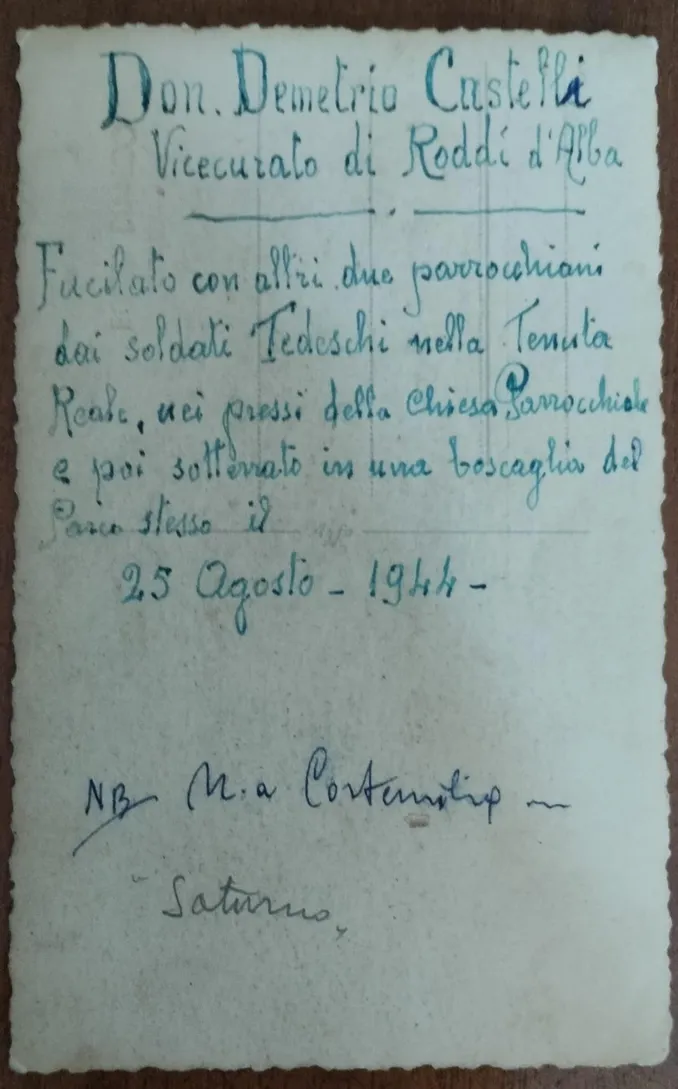 Don. Demetrio Castelli
Vicecurato di Roddi d'Alba
Fucilato con altri due parrocchiani
dai soldati Tedeschi nella Tenuta
Reale, nei pressi della Chiesa Parrocchiale
e poi sotterrato in una boscaglia del
Parco stesso il
25 Agosto - 1944 -
NB N. a Cortemilia
Saturno,